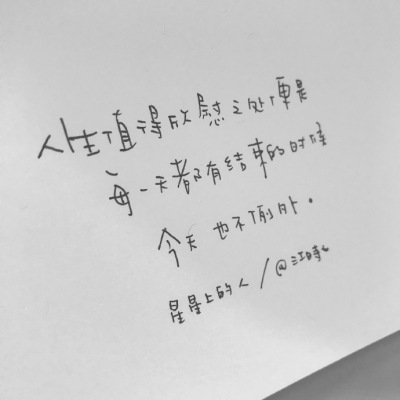 人生值得欣慰之处便是
每一天都有结束的时候
今天也不例外.
星星上的人/@江